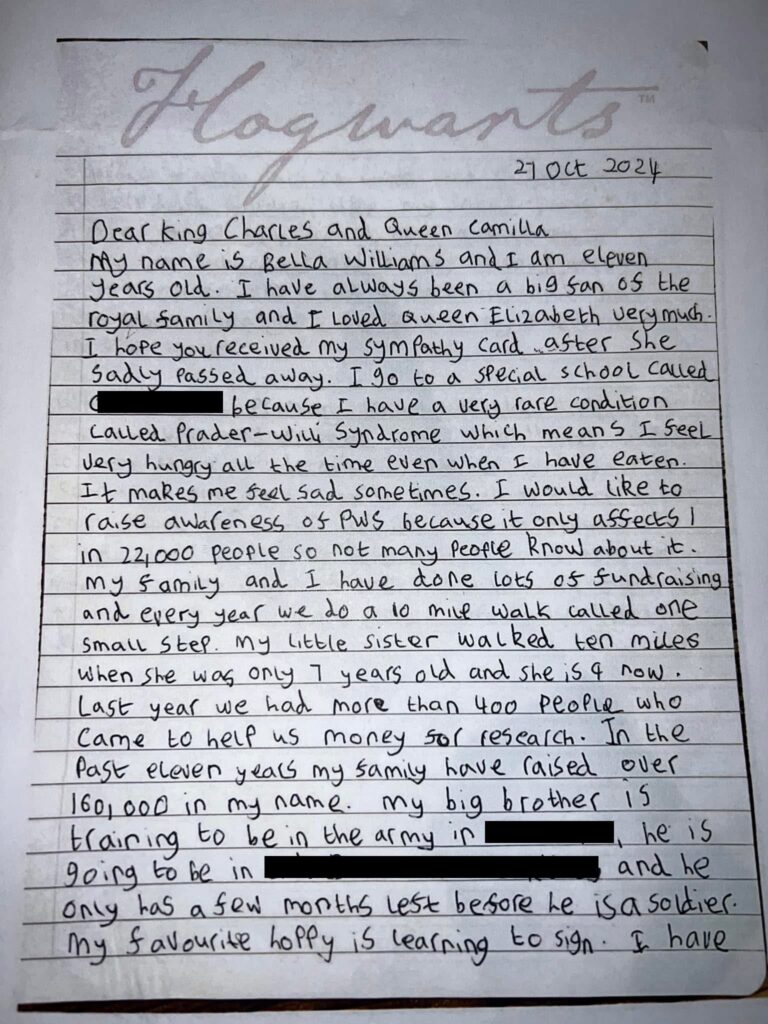 Hogwarts™
27 Oct 2024
Dear King Charles and Queen Camilla
My name is Bella Williams and I am eleven
years old. I have always been a big fan of the
royal family and I loved Queen Elizabeth very much.
I hope you received my sympathy card after she
sadly passed away. I go to a special school called
because I have a very rare condition
called Prader-Willi Syndrome which means I feel
very hungry all the time even when I have eaten.
It makes me feel sad sometimes. I would like to
raise awareness of PWS because it only affects 1
in 22,000 people so not many people know about it.
My family and I have done lots of fundraising
and every year we do a 10 mile walk called one
small step. My little sister walked ten miles
when she was only 7 years old and she is 9 now.
Last year we had more than 400 people who
came to help us money for research. In the
past eleven years my family have raised over
160,000 in my name. My big brother is
training to be in the army in , he is
going to be in and he
only has a few months left before he is a soldier.
My favourite hoppy is learning to sign. I have